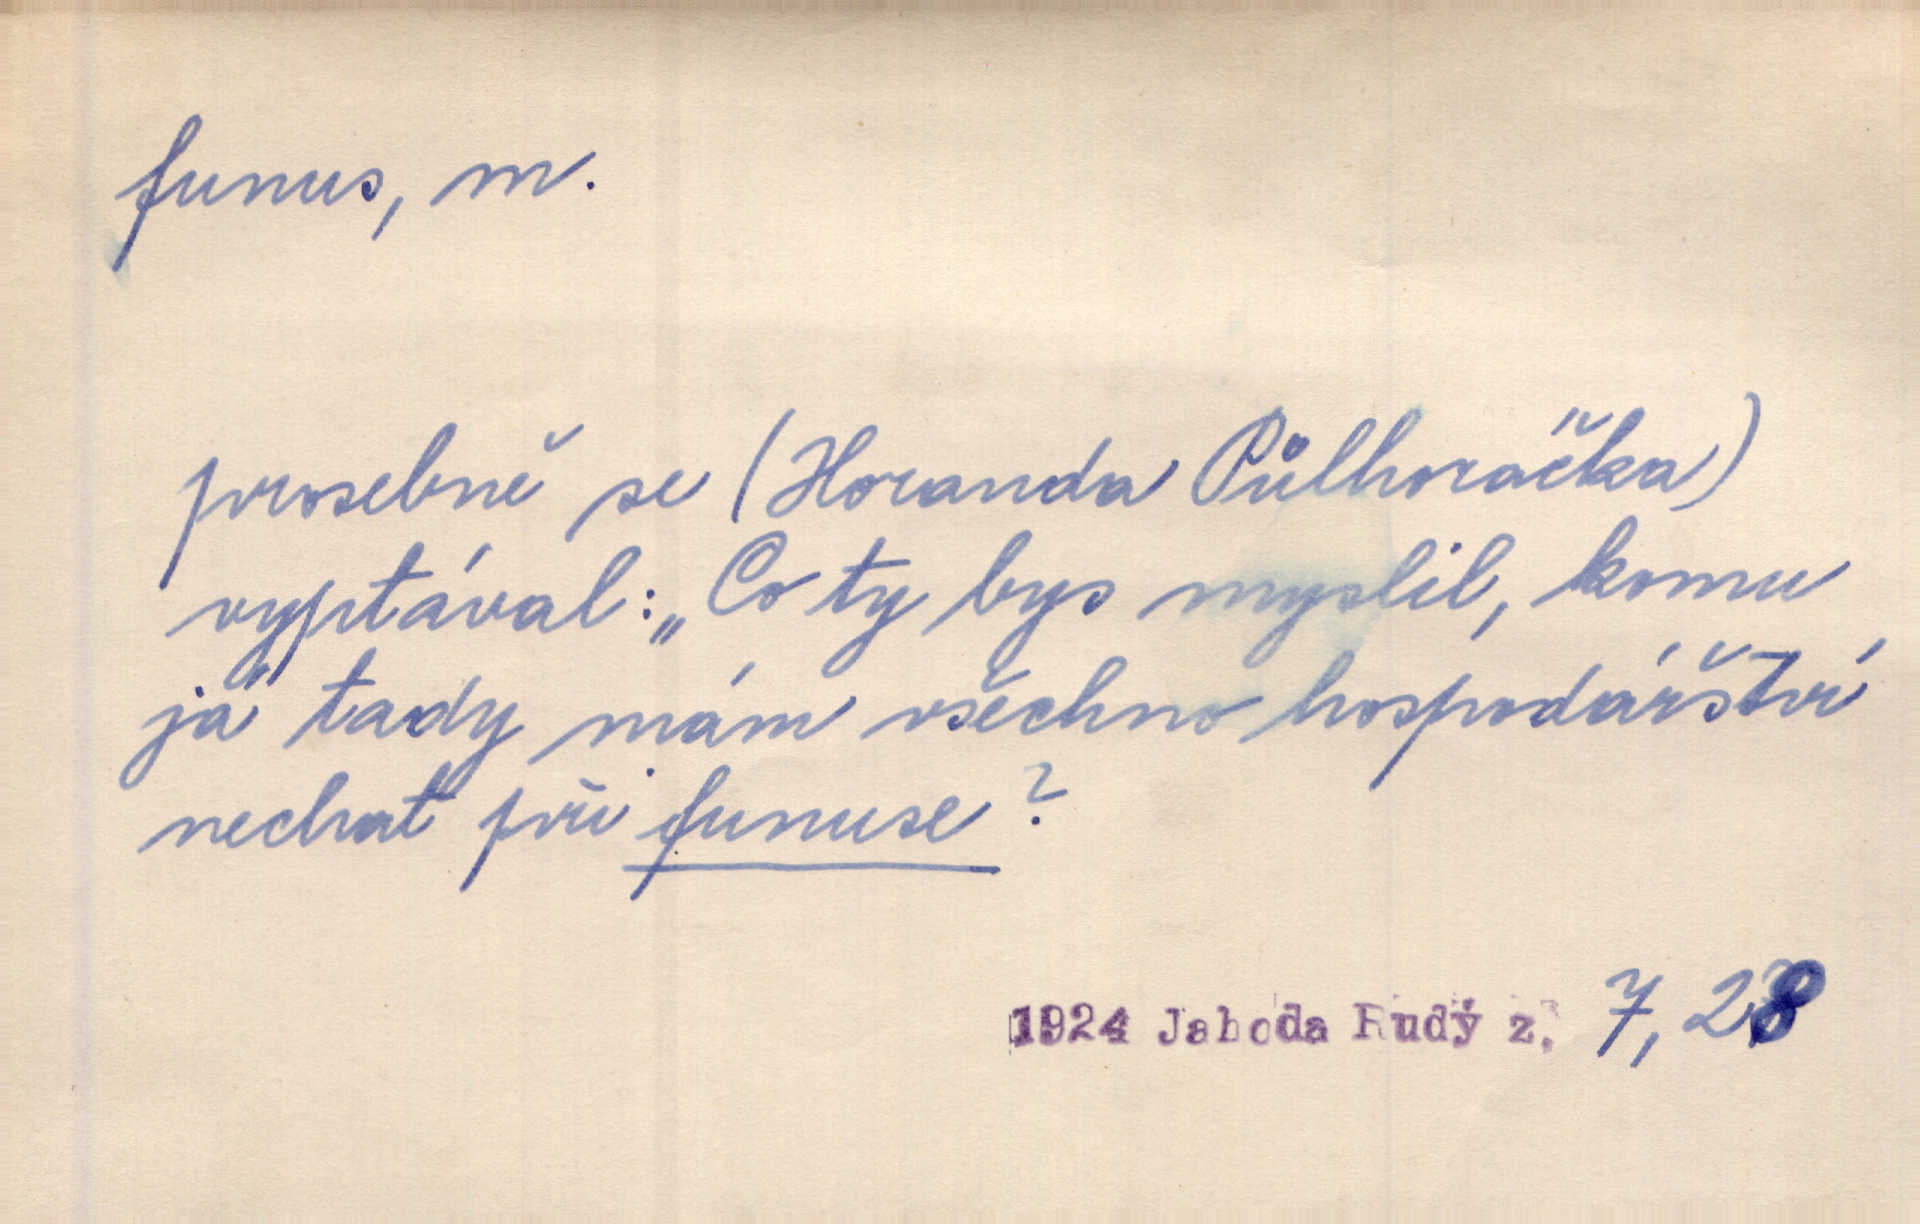 funus, m.
prosebně se (Horanda Půlhoráčka)
vyptával: „Co ty bys myslil, komu
já tady mám všechno hospodářství
nechat při funuse?
1924 Jahoda Rudý z. 7, 28